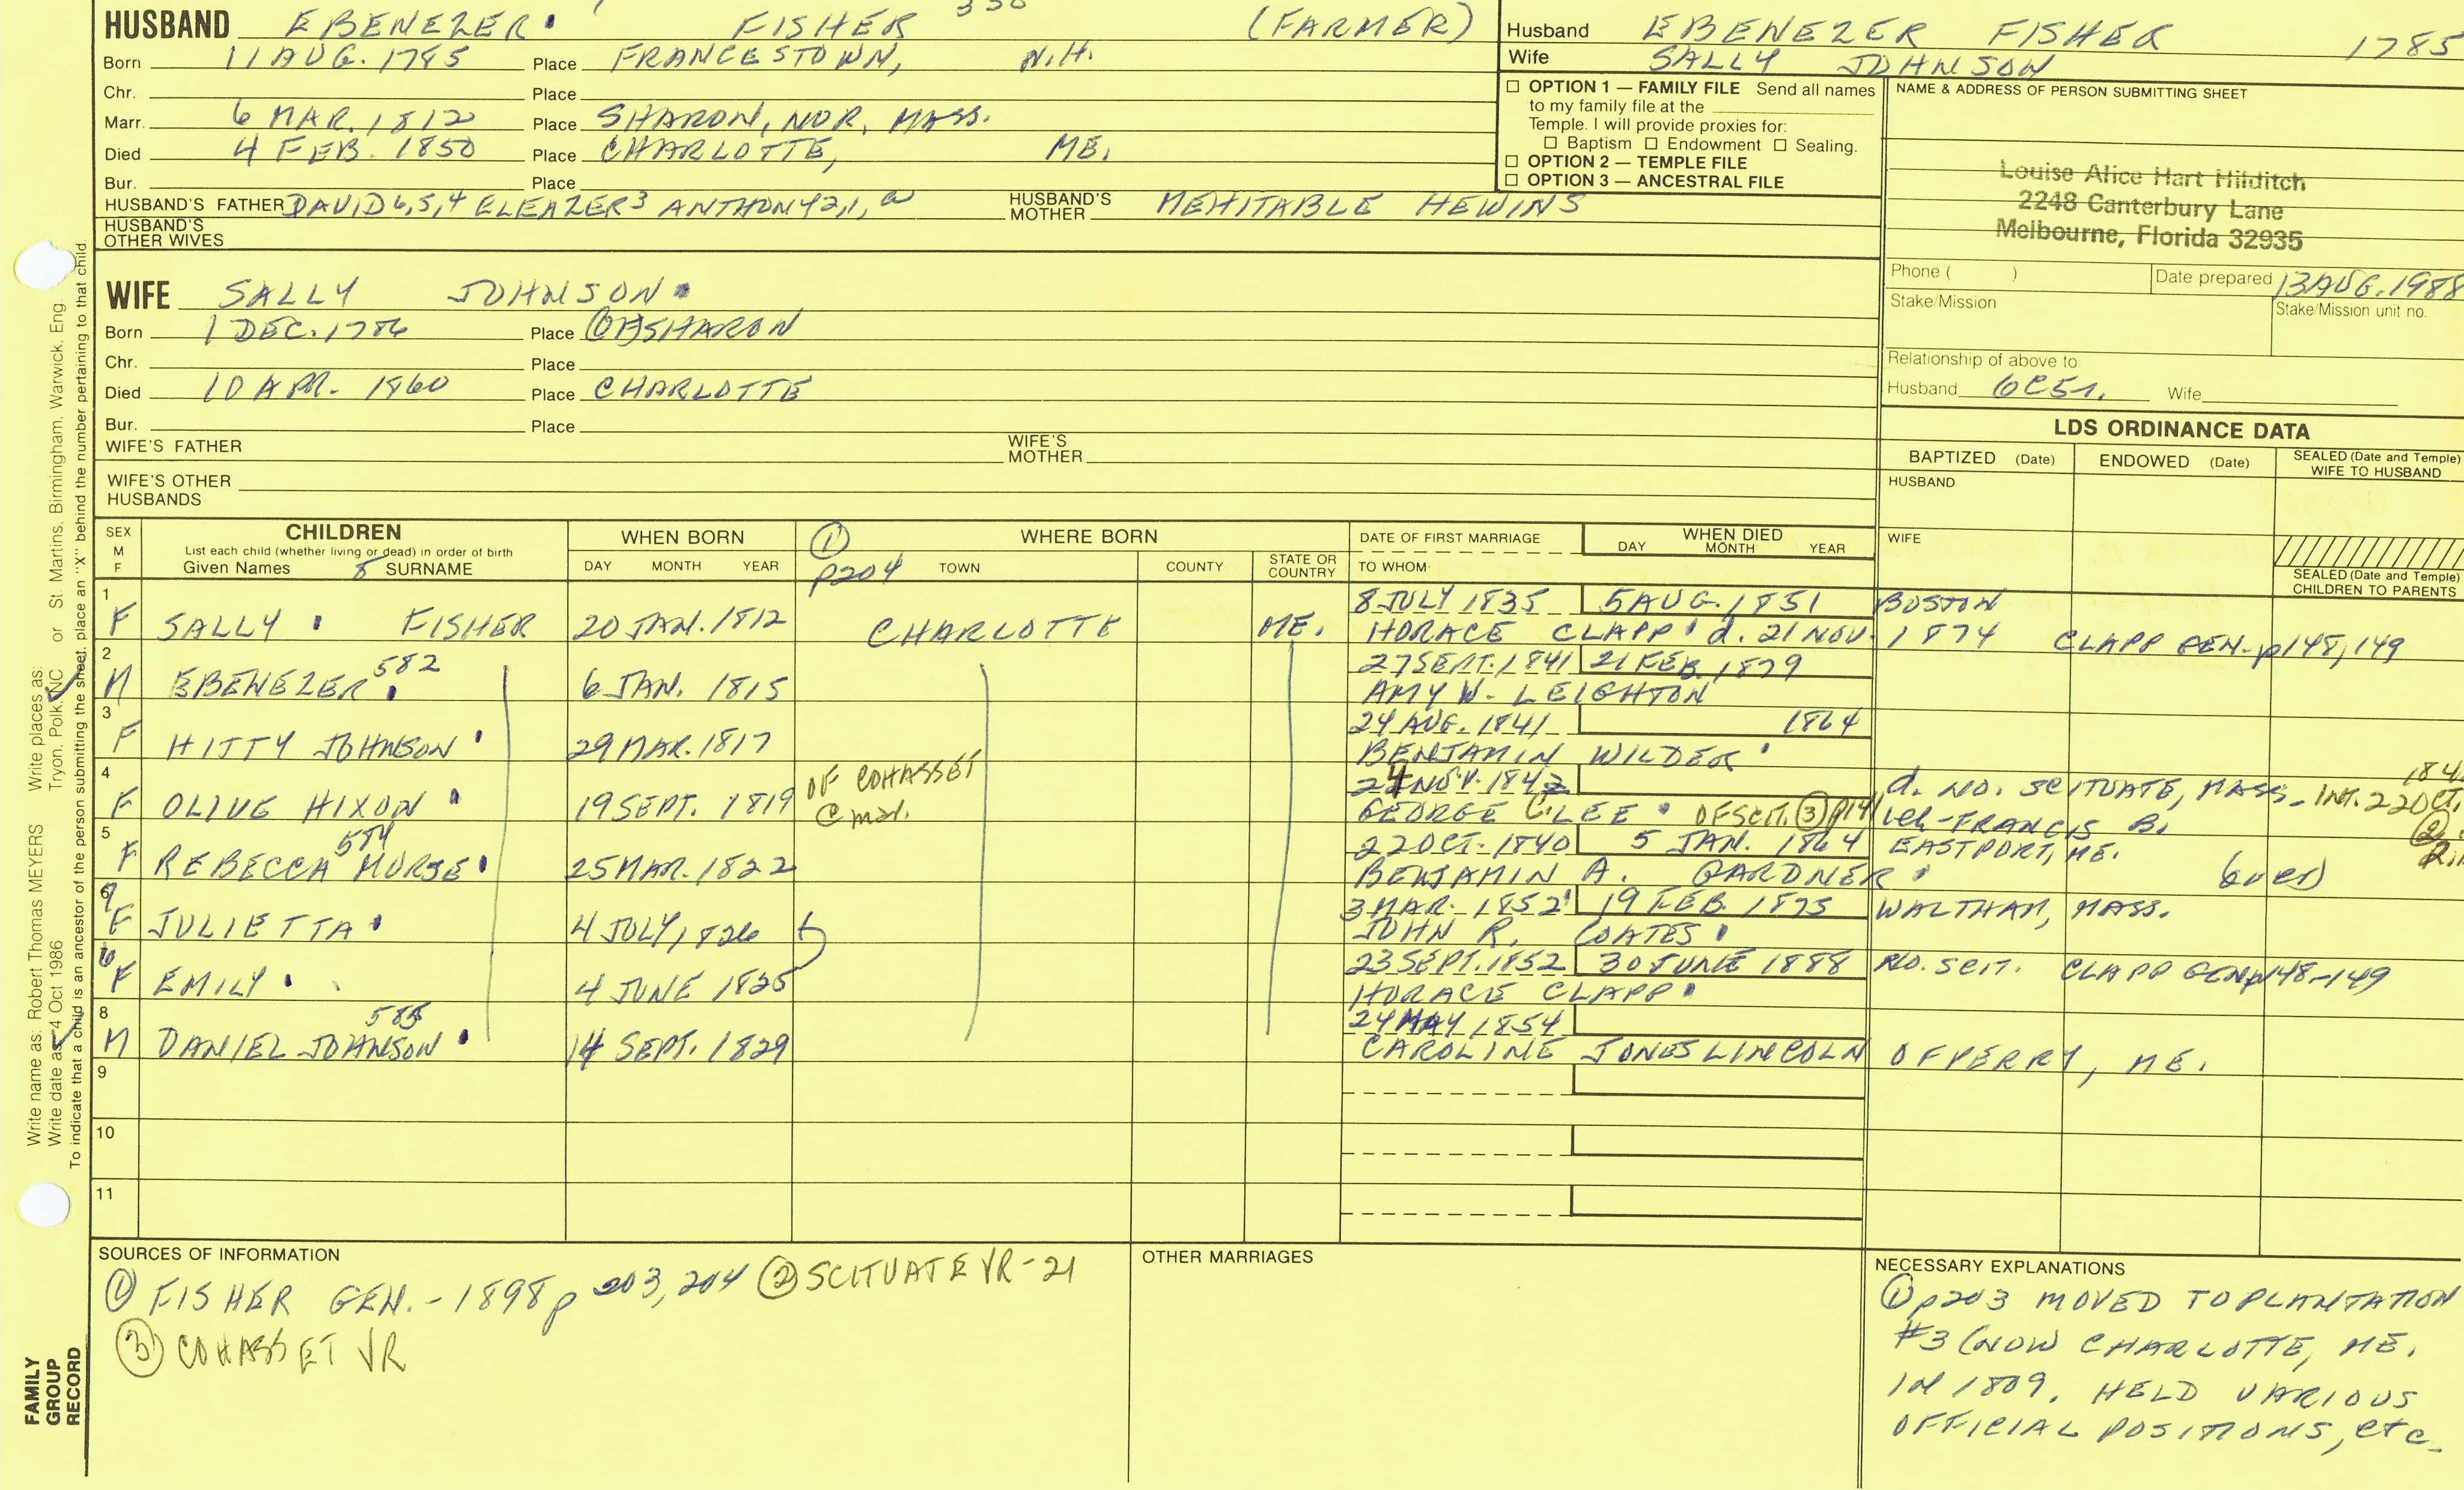 HUSBAND EBENEZER FISHER 350 (FARMER)
Born 11 AUG. 1785 Place FRANCESTOWN, N.H.
Chr. Place
Marr. 6 MAR. 1812 Place SHARON, NOR, MASS.
Died 4 FEB. 1850 Place CHARLOTTE, ME.
Bur. Place
HUSBAND'S FATHER DAVID 6,5,4 ELEAZER3 ANTHONY 2,1, a HUSBAND'S MOTHER MEHITABLE HEWINS
HUSBAND'S OTHER WIVES
Husband EBENEZER FISHER 1785
Wife SALLY JOHNSON
☐ OPTION 1 — FAMILY FILE Send all names
to my family file at the
Temple. I will provide proxies for:
☐ Baptism ☐ Endowment ☐ Sealing.
☐ OPTION 2 — TEMPLE FILE
☐ OPTION 3 — ANCESTRAL FILE
NAME & ADDRESS OF PERSON SUBMITTING SHEET
Louise Alice Hart Hilditch
2248 Canterbury Lane
Melbourne, Florida 32935
Phone ( ) Date prepared 13 AUG. 1988
Stake/Mission Stake/Mission unit no.
Relationship of above to
Husband 6C5r. Wife
WIFE SALLY JOHNSON
Born 1 DEC. 1786 Place (OF) SHARON
Chr. Place
Died 10 APR. 1860 Place CHARLOTTE
Bur. Place
WIFE'S FATHER WIFE'S MOTHER
WIFE'S OTHER HUSBANDS
LDS ORDINANCE DATA
BAPTIZED (Date) ENDOWED (Date) SEALED (Date and Temple) WIFE TO HUSBAND
HUSBAND
WIFE
SEALED (Date and Temple) CHILDREN TO PARENTS
SEX M F
CHILDREN
List each child (whether living or dead) in order of birth
Given Names 8 SURNAME
WHEN BORN
DAY MONTH YEAR
① p204 WHERE BORN
TOWN COUNTY STATE OR COUNTRY
DATE OF FIRST MARRIAGE
TO WHOM
WHEN DIED
DAY MONTH YEAR
1 F SALLY FISHER 20 JAN. 1812 CHARLOTTE ME. 8 JULY 1835 5 AUG. 1851 BOSTON
HORACE CLAPP d. 21 NOV. 1874 CLAPP GEN. p148,149
2 M EBENEZER 582 6 JAN. 1815 27 SEPT. 1841 21 FEB. 1879
AMY W. LEIGHTON
3 F HITTY JOHNSON 29 MAR. 1817 24 AUG. 1841 1864
BENJAMIN WILDER
4 F OLIVE HIXON 19 SEPT. 1819 OF COHASSET @ mar. 24 NOV. 1842 d. NO. SCITUATE, MASS. INT. 22 OCT. 184
GEORGE C. LEE OF SCIT. ③ p141 ch-FRANCIS B. ②
5 F REBECCA MORSE 584 25 MAR. 1822 22 OCT. 1840 5 JAN. 1864 EASTPORT, ME.
BENJAMIN A. GARDNER (over)
7 F JULIETTA 4 JULY, 1826 3 MAR. 1852 19 FEB. 1875 WALTHAM, MASS.
JOHN R. COATES
6 F EMILY 4 JUNE 1825 23 SEPT. 1852 30 JUNE 1888 NO. SCIT. CLAPP GEN p148-149
HORACE CLAPP
8 M DANIEL JOHNSON 585 14 SEPT. 1829 24 MAY 1854
CAROLINE JONES LINCOLN OF PERRY, ME.
9
10
11
SOURCES OF INFORMATION
① FISHER GEN. - 1898 p 203, 204 ② SCITUATE VR - 21
③ COHASSET VR
OTHER MARRIAGES
NECESSARY EXPLANATIONS
① p203 MOVED TO PLANTATION
#3 (NOW CHARLOTTE, ME.
IN 1809. HELD VARIOUS
OFFICIAL POSITIONS, etc.
Write name as: Robert Thomas MEYERS Write places as: Tryon, Polk, NC or St. Martins, Birmingham, Warwick, Eng.
Write date as: 4 Oct 1986
To indicate that a child is an ancestor of the person submitting the sheet, place an "X" behind the number pertaining to that child.
FAMILY
GROUP
RECORD